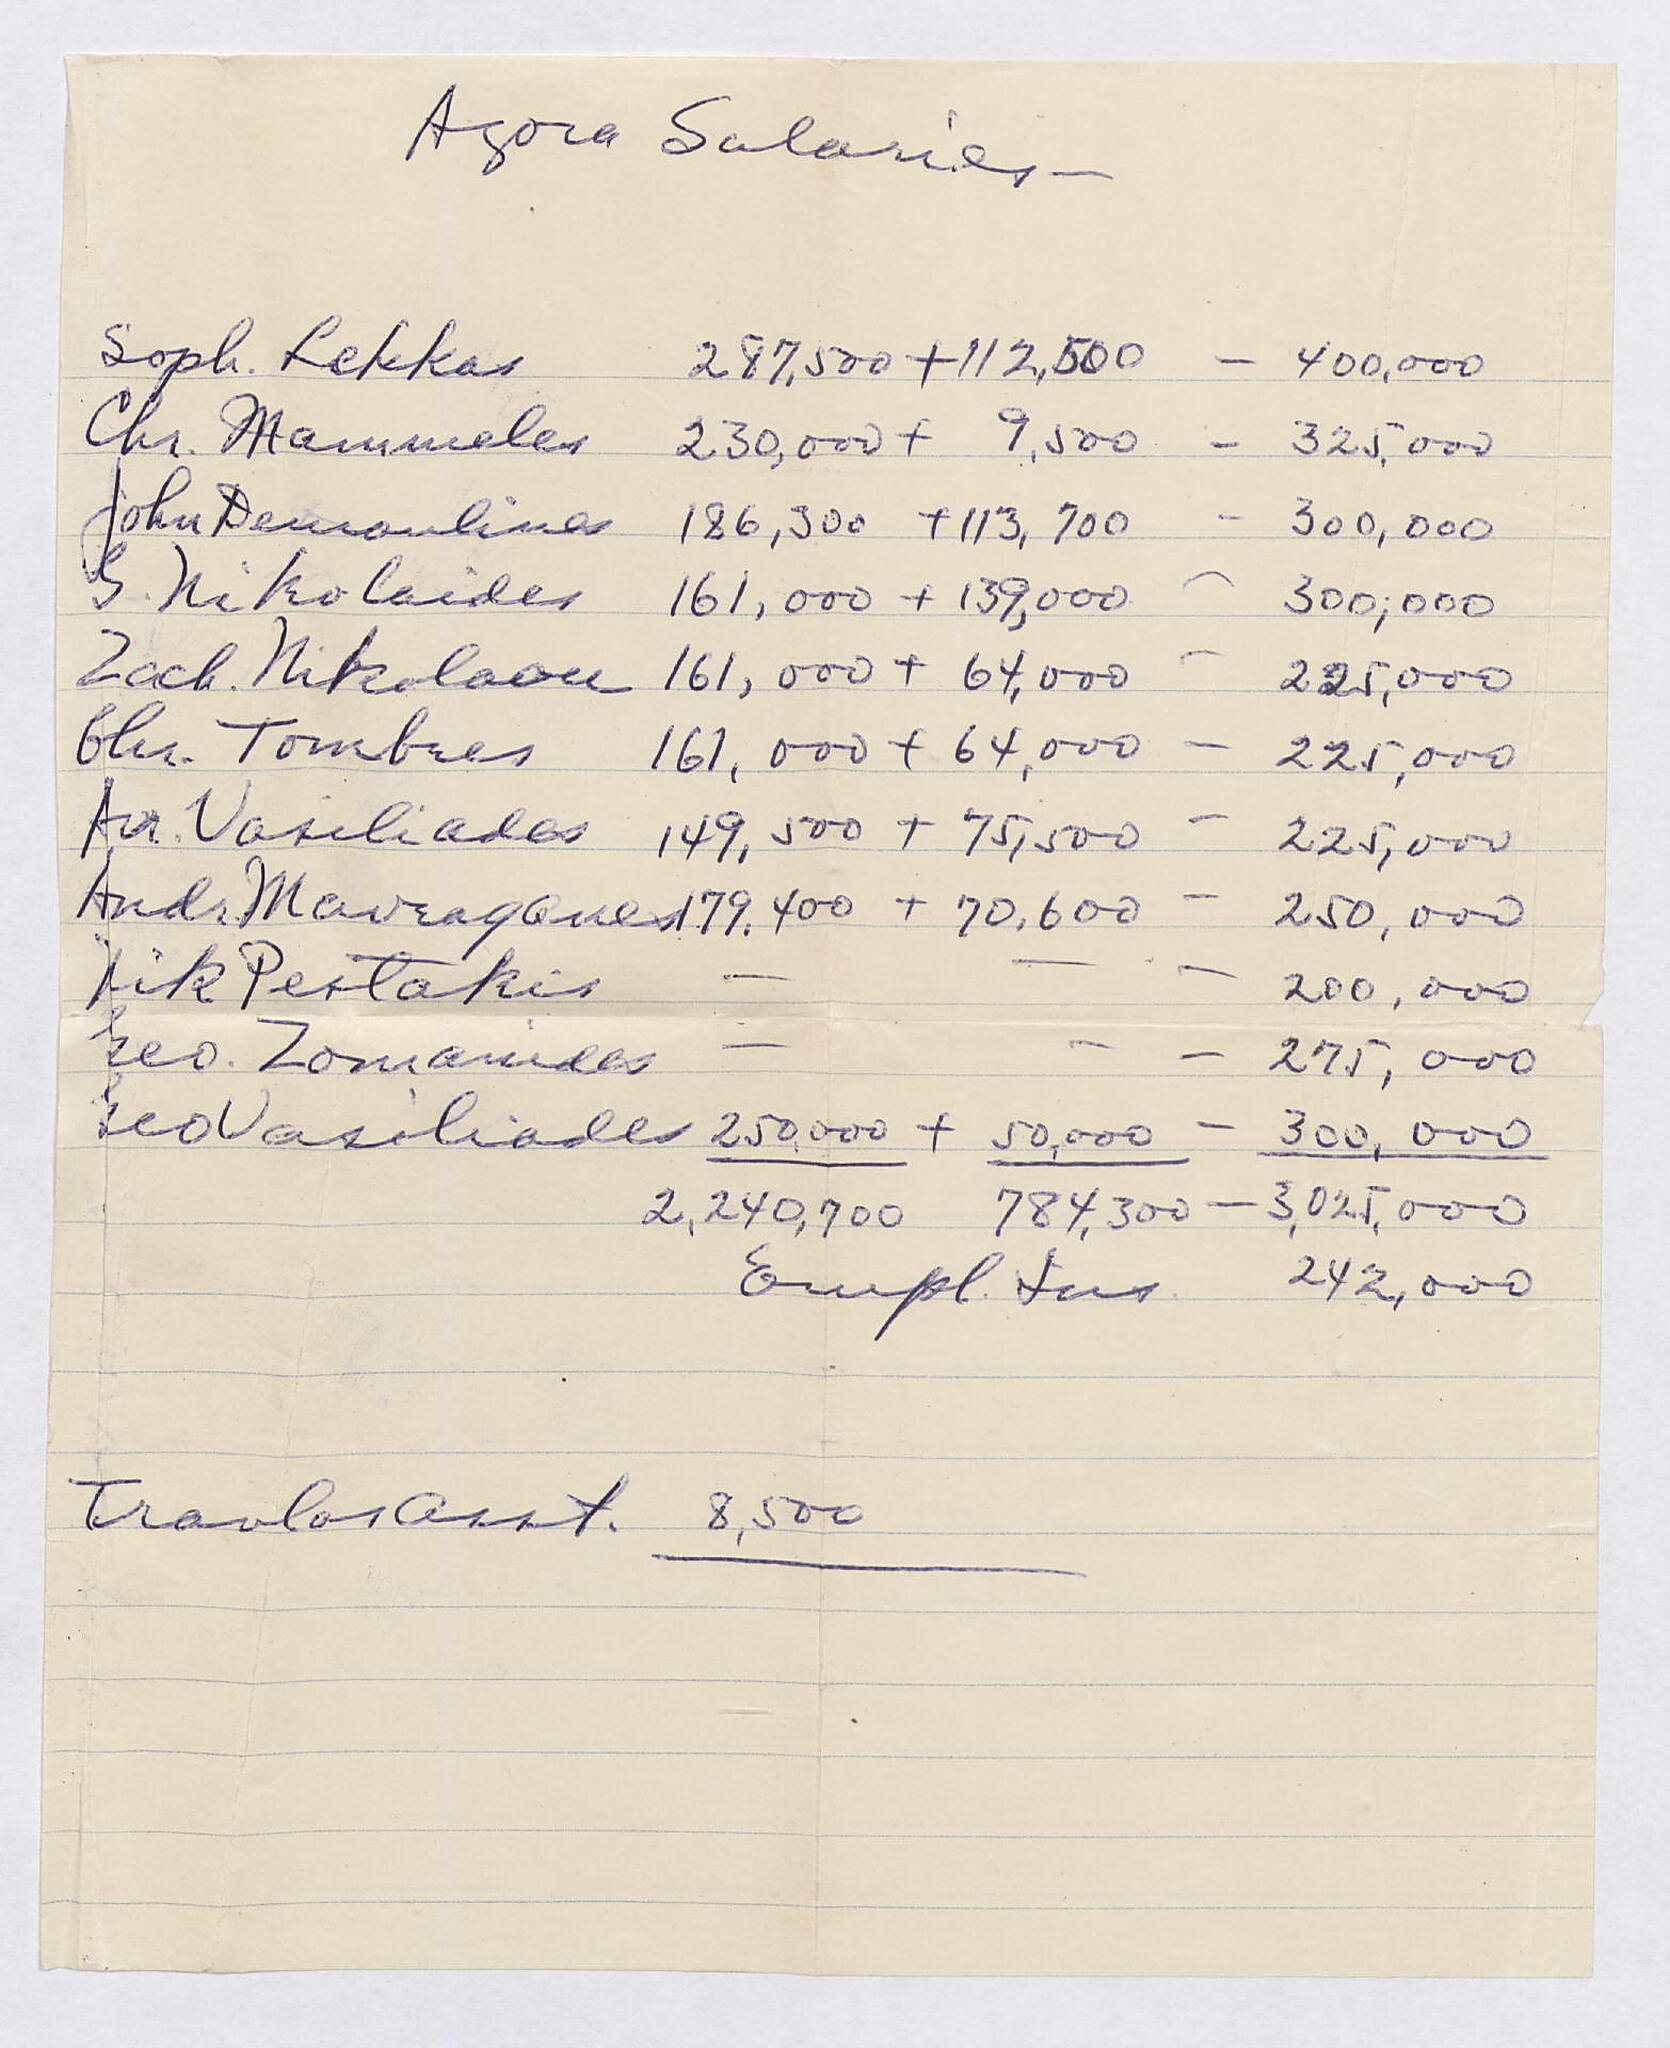 Agora Salaries —
Soph. Lekkas 287,500 + 112,500 — 400,000
Chr. Mammeles 230,000 + 9,500 — 325,000
John Demoulines 186,300 + 113,700 — 300,000
G. Nikolaides 161,000 + 139,000 — 300,000
Zach. Nikolaou 161,000 + 64,000 — 225,000
Chr. Tombres 161,000 + 64,000 — 225,000
Av. Vasiliades 149,500 + 75,500 — 225,000
Andr. Mavraganes 179,400 + 70,600 — 250,000
Nik Pestakis — — — 200,000
Geo. Zomanides — — — 275,000
Geo Vasiliades 250,000 + 50,000 — 300,000
2,240,700 784,300 — 3,025,000
Empl. Ins. 242,000
Travlos Asst. 8,500